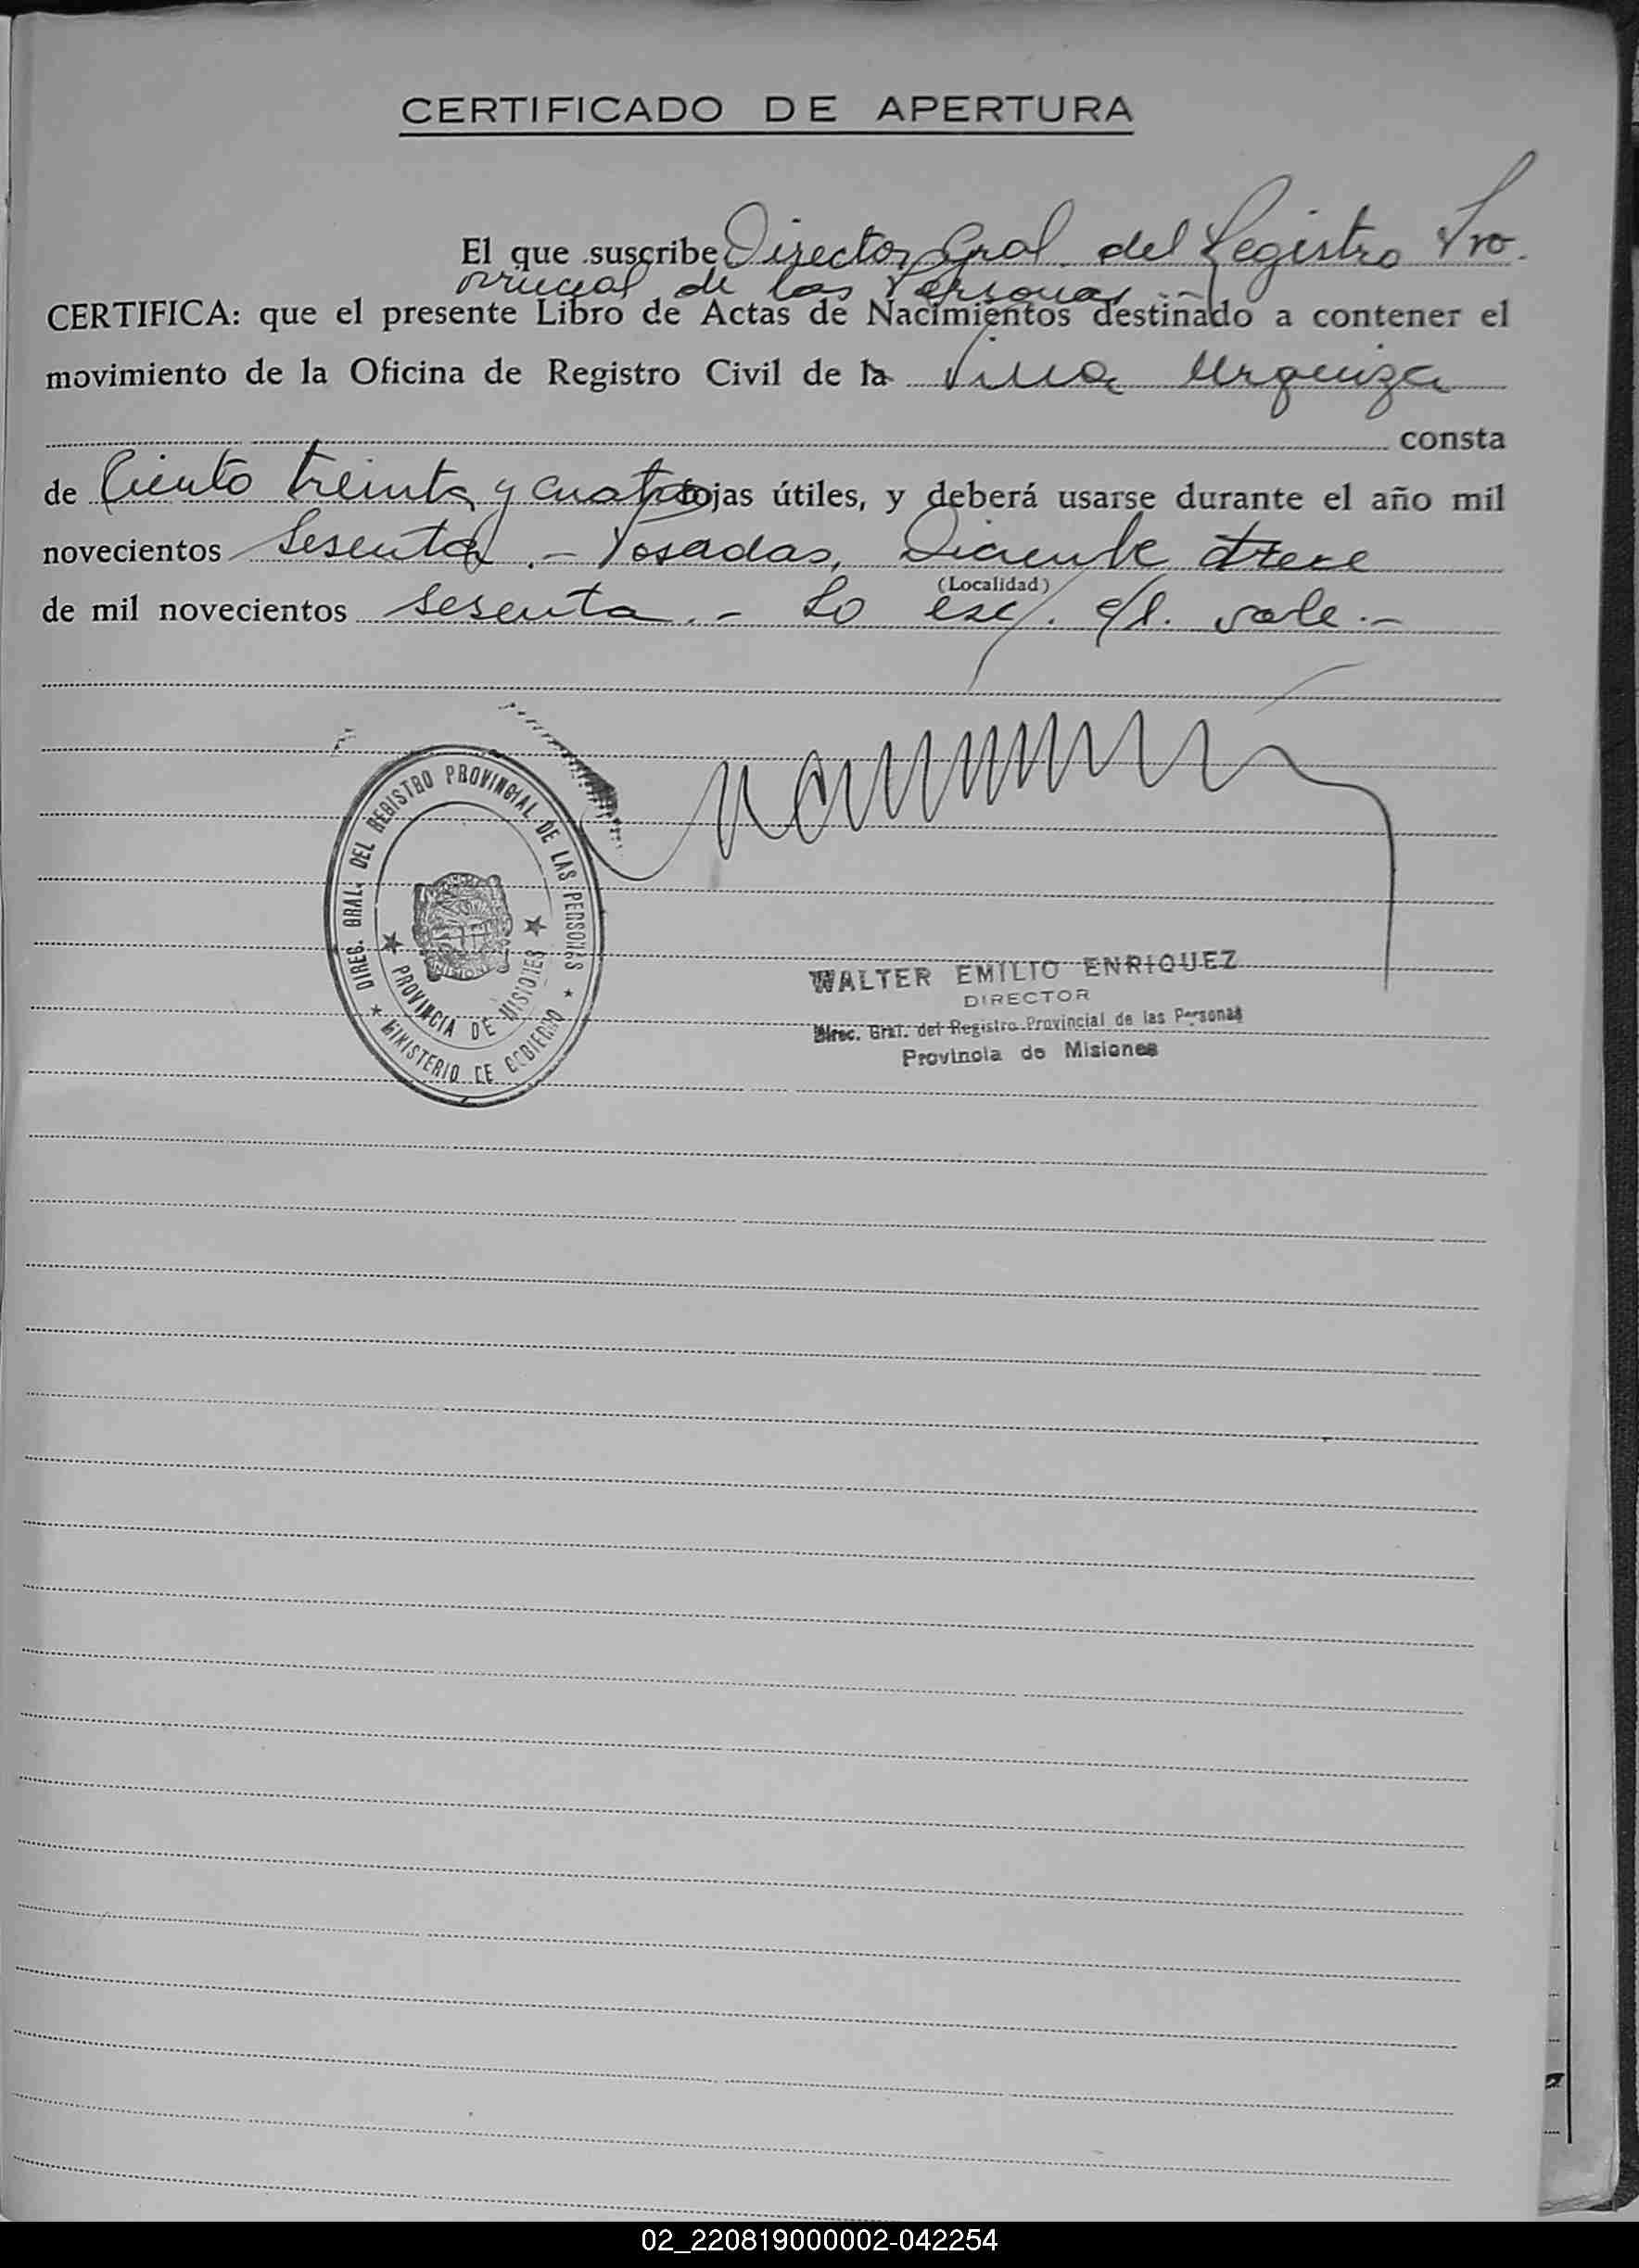 CERTIFICADO DE APERTURA
El que suscribe Director Gral. del Registro Pro-
vincial de las Personas.-
CERTIFICA: que el presente Libro de Actas de Nacimientos destinado a contener el
movimiento de la Oficina de Registro Civil de la Villa Urquiza
consta
de Ciento treinta y cuatro fojas útiles, y deberá usarse durante el año mil
novecientos Sesenta .- Posadas, Diciembre trece
(Localidad)
de mil novecientos sesenta.- Lo esc/. e/l. vale.-
DIREC. GRAL. DEL REGISTRO PROVINCIAL DE LAS PERSONAS
PROVINCIA DE MISIONES
MINISTERIO DE GOBIERNO
MISIONES
WALTER EMILIO ENRIQUEZ
DIRECTOR
Direc. Gral. del Registro Provincial de las Personas
Provincia de Misiones
02_220819000002-042254